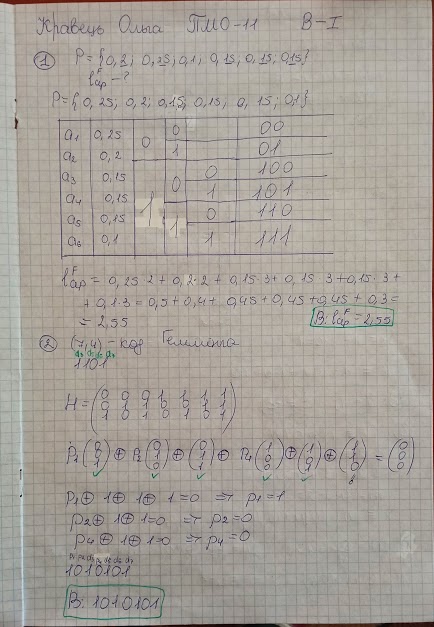 Кравець Ольга ПМО-11 В-I
① P={0,2; 0,25; 0,1; 0,15; 0,15; 0,15}
l^F_ср - ?
P={0,25; 0,2; 0,15; 0,15; 0,15; 0,1}
a1 0,25 0 0 00
a2 0,2 1 01
a3 0,15 1 0 0 100
a4 0,15 1 101
a5 0,15 1 0 110
a6 0,1 1 111
l^F_ср = 0,25·2 + 0,2·2 + 0,15·3 + 0,15·3 + 0,15·3 +
+ 0,1·3 = 0,5 + 0,4 + 0,45 + 0,45 + 0,45 + 0,3 =
= 2,55
В: l^F_ср = 2,55
② (7,4) - код Геммінга
1101
H = (0 0 0 1 1 1 1
0 1 1 0 0 1 1
1 0 1 0 1 0 1)
P1(0 0 1) ⊕ P2(0 1 0) ⊕ (0 1 1) ⊕ P4(1 0 0) ⊕ (1 0 1) ⊕ (1 1 0) = (0 0 0)
P1 ⊕ 1 ⊕ 1 ⊕ 1 = 0 ⇒ p1 = 1
p2 ⊕ 1 ⊕ 1 = 0 ⇒ p2 = 0
p4 ⊕ 1 ⊕ 1 = 0 ⇒ p4 = 0
1010101
В: 1010101